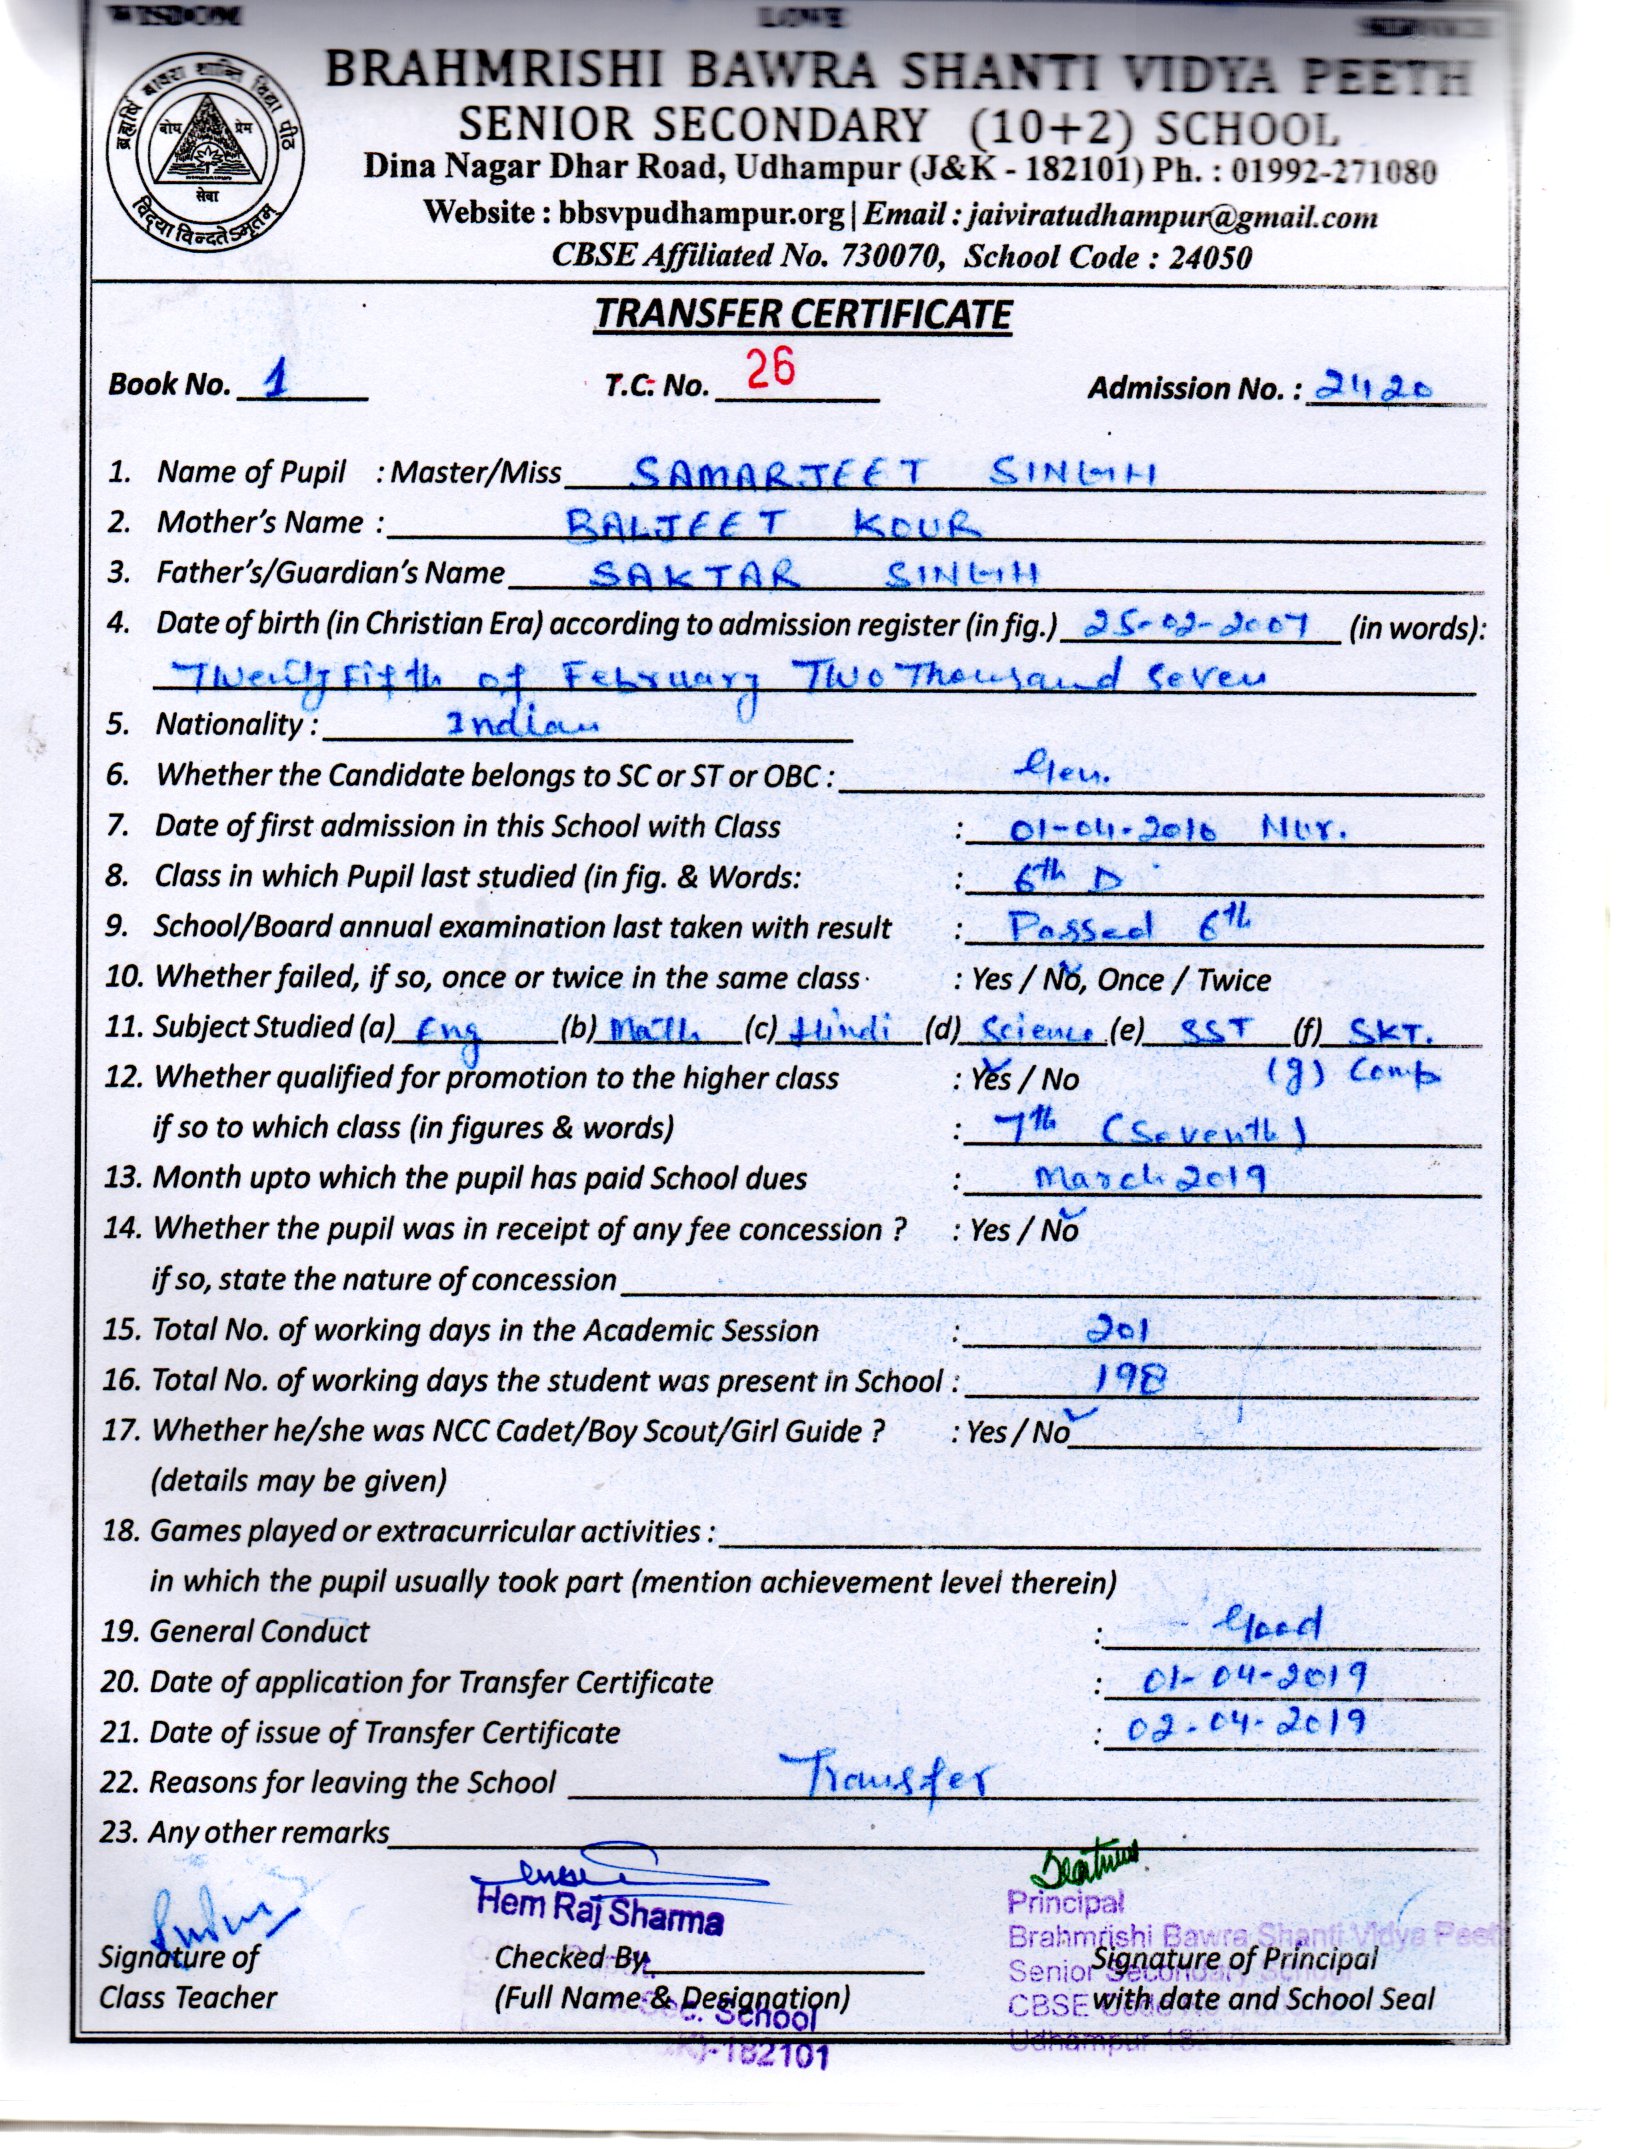 WISDOM LOVE
BRAHMRISHI BAWRA SHANTI VIDYA PEETH
SENIOR SECONDARY (10+2) SCHOOL
Dina Nagar Dhar Road, Udhampur (J&K - 182101) Ph. : 01992-271080
Website : bbsvpudhampur.org | Email : jaiviratudhampur@gmail.com
CBSE Affiliated No. 730070, School Code : 24050
ब्रह्मर्षि बावरा शान्ति विद्या पीठ
बोध प्रेम
सेवा
विद्या विन्दतेऽमृतम्
TRANSFER CERTIFICATE
Book No. 1 T.C. No. 26 Admission No. : 2420
1. Name of Pupil : Master/Miss SAMARJEET SINGH
2. Mother's Name : BALJEET KOUR
3. Father's/Guardian's Name SAKTAR SINGH
4. Date of birth (in Christian Era) according to admission register (in fig.) 25-02-2007 (in words):
Twenty Fifth of February Two Thousand Seven
5. Nationality : Indian
6. Whether the Candidate belongs to SC or ST or OBC : Gen.
7. Date of first admission in this School with Class : 01-04-2010 Nur.
8. Class in which Pupil last studied (in fig. & Words: : 6th D
9. School/Board annual examination last taken with result : Passed 6th
10. Whether failed, if so, once or twice in the same class : Yes / No, Once / Twice
11. Subject Studied (a) Eng (b) Math (c) Hindi (d) Science (e) SST (f) SKT.
12. Whether qualified for promotion to the higher class : Yes / No (g) Comp
if so to which class (in figures & words) : 7th (Seventh)
13. Month upto which the pupil has paid School dues : March 2019
14. Whether the pupil was in receipt of any fee concession ? : Yes / No
if so, state the nature of concession
15. Total No. of working days in the Academic Session : 201
16. Total No. of working days the student was present in School : 198
17. Whether he/she was NCC Cadet/Boy Scout/Girl Guide ? : Yes / No
(details may be given)
18. Games played or extracurricular activities :
in which the pupil usually took part (mention achievement level therein)
19. General Conduct : Good
20. Date of application for Transfer Certificate : 01-04-2019
21. Date of issue of Transfer Certificate : 02-04-2019
22. Reasons for leaving the School Transfer
23. Any other remarks
Hem Raj Sharma
Principal
Brahmrishi Bawra Shanti Vidya Peeth
Signature of Checked By Signature of Principal
Senior Secondary School
Class Teacher (Full Name & Designation) with date and School Seal
Sec. School CBSE Code
182101 Udhampur 182101